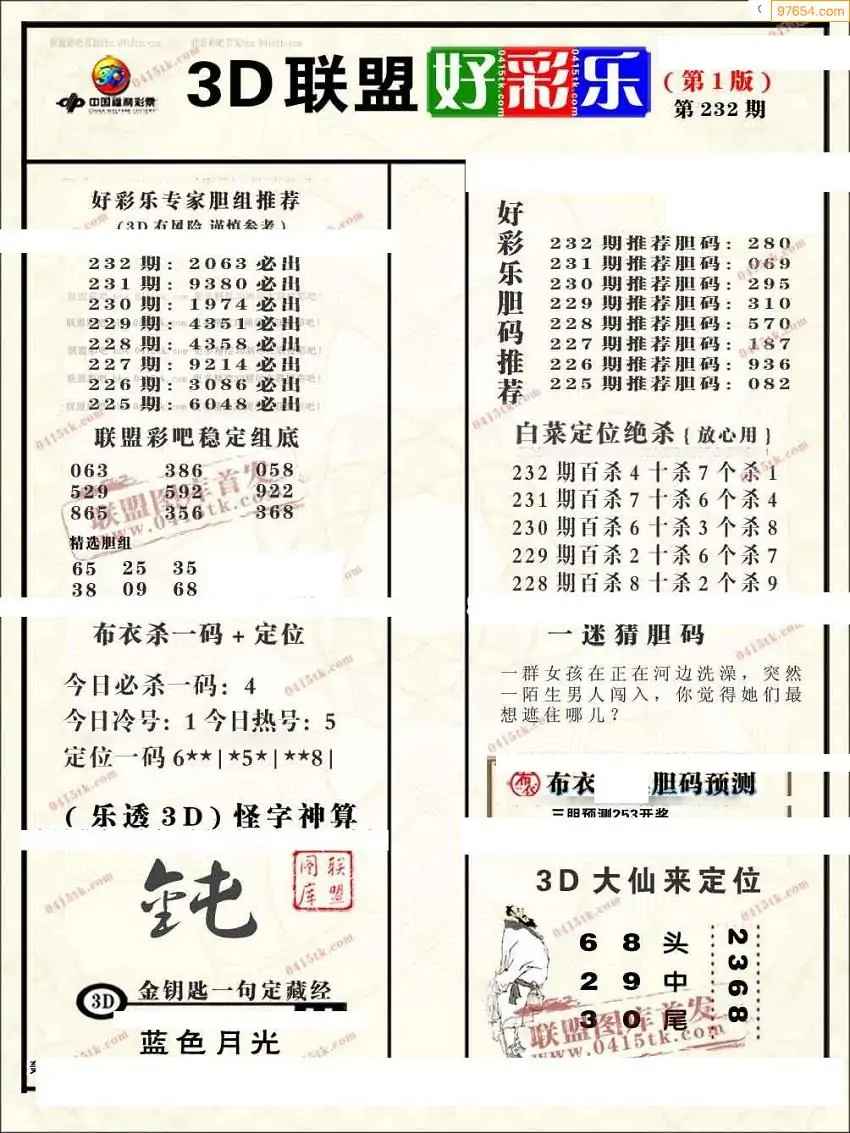 97654.com
中国福利彩票
CHINA WELFARE LOTTERY
3D联盟好彩乐
(第1版)
第232期
好彩乐专家胆组推荐
(3D有风险 谨慎参考)
232期:2063必出
231期:9380必出
230期:1974必出
229期:4351必出
228期:4358必出
227期:9214必出
226期:3086必出
225期:6048必出
联盟彩吧稳定组底
063 386 058
529 592 922
865 356 368
精选胆组
65 25 35
38 09 68
布衣杀一码+定位
今日必杀一码:4
今日冷号:1 今日热号:5
定位一码6**|*5*|**8|
(乐透3D)怪字神算
联盟
图库
3D
金钥匙一句定藏经
蓝色月光
好彩乐胆码推荐
232期推荐胆码:280
231期推荐胆码:069
230期推荐胆码:295
229期推荐胆码:310
228期推荐胆码:570
227期推荐胆码:187
226期推荐胆码:936
225期推荐胆码:082
白菜定位绝杀{放心用}
232期百杀4十杀7个杀1
231期百杀7十杀6个杀4
230期百杀6十杀3个杀8
229期百杀2十杀6个杀7
228期百杀8十杀2个杀9
一迷猜胆码
一群女孩在正在河边洗澡，突然
一陌生男人闯入，你觉得她们最
想遮住哪儿？
布衣
布衣 胆码预测
三胆预测253开奖
3D大仙来定位
68头
29中
30尾
2368
联盟图库首发
www.0415tk.com
0415tk.com